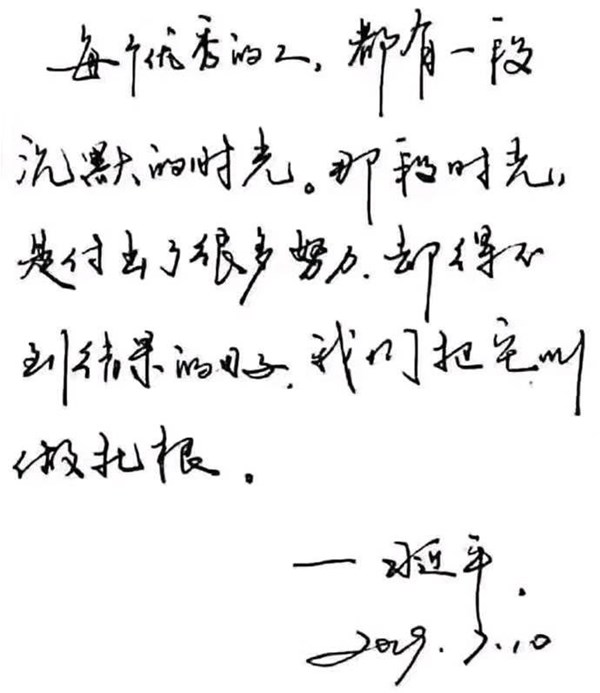 每个优秀的人,都有一段
沉默的时光。那段时光,
是付出了很多努力,却得不
到结果的日子,我们把它叫
做扎根。
—习近平.
2029.3.10